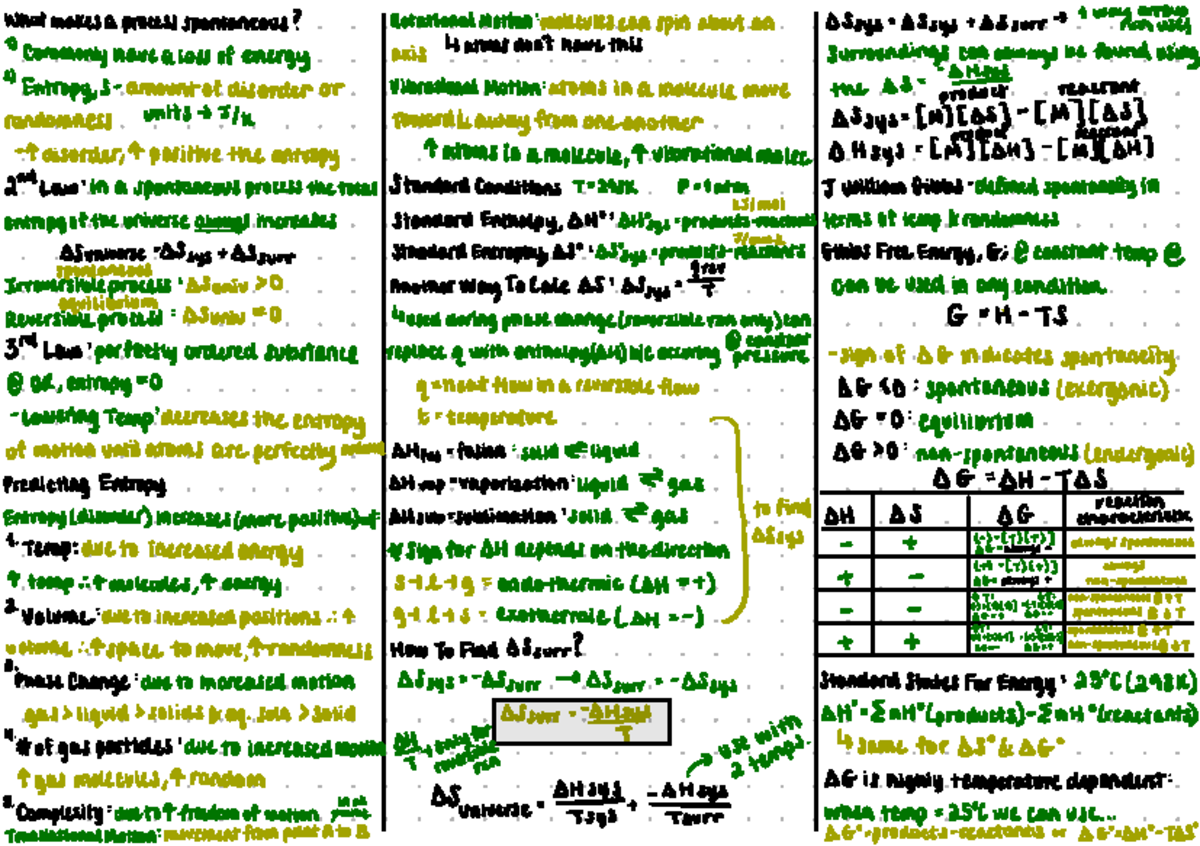 What makes a process spontaneous?
1) Commonly have a loss of energy
2) Entropy, S - amount of disorder or
randomness units → J/K
-↑ disorder, ↑ positive the entropy
2nd Law: in a spontaneous process the total
entropy of the universe always increases
ΔSuniverse = ΔSsys + ΔSsurr
spontaneous
Irreversible process: ΔSuniv > 0
equilibrium
Reversible process: ΔSuniv = 0
3rd Law: perfectly ordered substance
@ 0K, entropy = 0
- Lowering Temp: decreases the entropy
of motion until atoms are perfectly ordered
Predicting Entropy
Entropy (disorder) increases (more positive) w/
1. Temp: due to increased energy
↑ temp ∴ ↑ molecules, ↑ energy
2. Volume: due to increased positions ∴ ↑
volume ∴ ↑ space to move, ↑ randomness
3. Phase Change: due to increased motion
gas > liquid > solids & aq. soln > solid
4. # of gas particles: due to increased motion
↑ gas molecules, ↑ random
5. Complexity: due to ↑ freedom of motion
Translational Motion: movement from point A to B
Rotational Motion: molecules can spin about an
axis ↳ atoms don't have this
Vibrational Motion: atoms in a molecule move
toward & away from one another
↑ atoms in a molecule, ↑ vibrational molec
Standard Conditions T = 298K P = 1 atm
kJ/mol
Standard Enthalpy, ΔH°: ΔH°sys = products - reactants
Standard Entropy, ΔS°: ΔS°sys = products - reactants
Another Way To Calc ΔS: ΔSsys = qrev/T
↳ used during phase change (reversible rxn only) can
replace q with enthalpy (ΔH) b/c occuring @ constant pressure
q = heat flow in a reversible flow
t = temperature
ΔHfus = fusion: solid ⇌ liquid
ΔHvap = vaporization: liquid ⇌ gas
ΔHsub = sublimation: solid ⇌ gas
to find
ΔSsys
* Sign for ΔH depends on the direction
s→l→g = endothermic (ΔH = +)
g→l→s = exothermic (ΔH = -)
How To Find ΔSsurr?
ΔSsys = -ΔSsurr → ΔSsurr = -ΔSsys
ΔSsurr = -ΔHsys/T
ΔH/T → only for reversible rxn
→ use with 2 temps.
ΔSuniverse = ΔHsys/Tsys + -ΔHsys/Tsurr
ΔSsys = ΔSsys + ΔSsurr →
Surroundings can always be found using
the ΔS = -ΔHsys/T
product reactant
ΔSsys = [M][ΔS] - [M][ΔS]
product reactant
ΔHsys = [M][ΔH] - [M][ΔH]
J William Gibbs - defined spontaneity in
terms of temp & randomness
Gibbs Free Energy, G: @ constant temp @
can be used in any condition.
G = H - TS
- sign of ΔG indicates spontaneity
ΔG < 0: spontaneous (exergonic)
ΔG = 0: equilibrium
ΔG > 0: non-spontaneous (endergonic)
ΔG = ΔH - TΔS
ΔH ΔS ΔG reaction characteristic
- + (-)-[T)(+)] ΔG = always - always spontaneous
+ - ΔG = always + always non-spontaneous
- - non-spontaneous @ ↑T spontaneous @ ↓T
+ + spontaneous @ ↑T non-spontaneous @ ↓T
Standard States For Energy: 25°C (298K)
ΔH° = ΣnH°(products) - ΣnH°(reactants)
↳ same for ΔS° & ΔG°
ΔG is highly temperature dependent:
when temp = 25°C we can use...
ΔG° = products - reactants or ΔG° = ΔH° - TΔS°